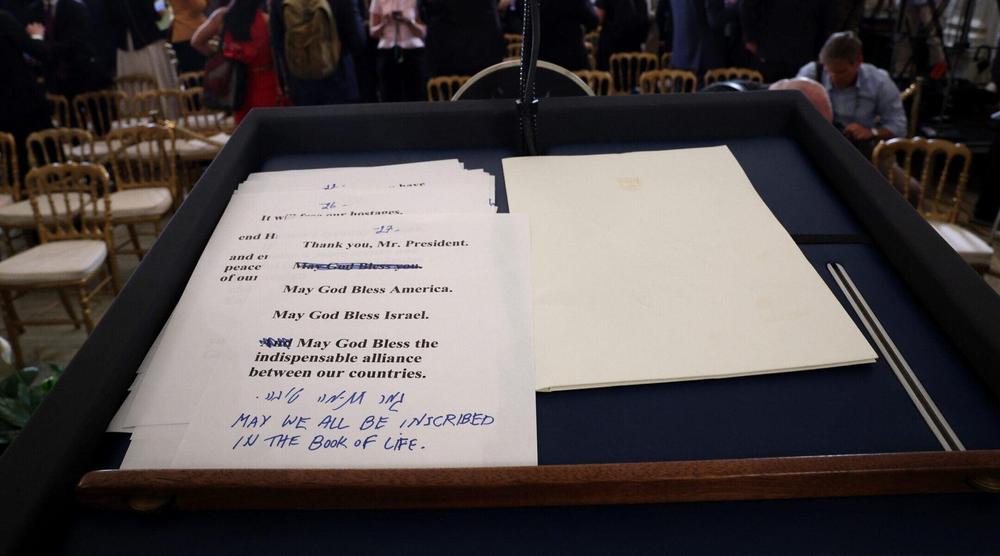 have
26 -
It w free our hostages.
end H
and
peace
of our
27-
Thank you, Mr. President.
May God Bless you.
May God Bless America.
May God Bless Israel.
And May God Bless the
indispensable alliance
between our countries.
גמר חתימה טובה.
MAY WE ALL BE INSCRIBED
IN THE BOOK OF LIFE.